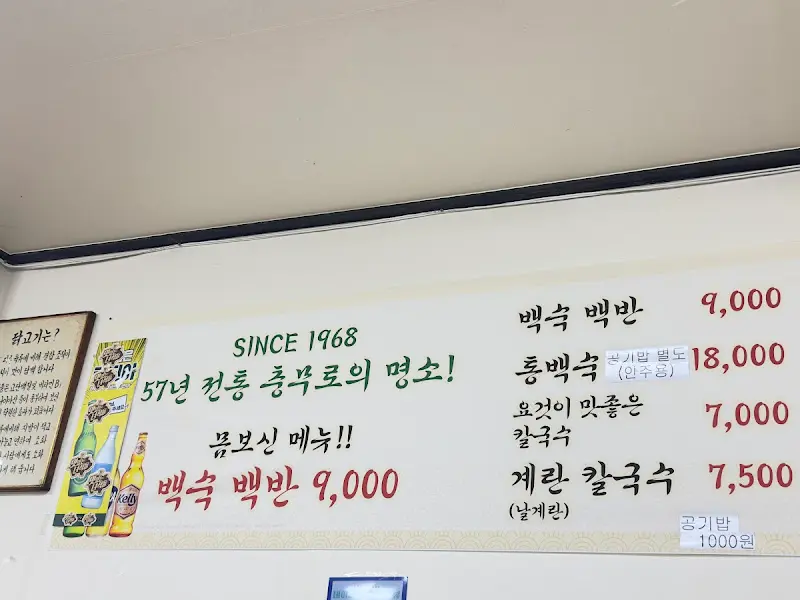 닭고기는?
SINCE 1968
57년 전통 충무로의 명소!
몸보신 메뉴!!
백숙 백반 9,000
kelly
백숙 백반 9,000
통백숙 공기밥 별도 (안주용) 18,000
요것이 맛좋은
칼국수 7,000
계란 칼국수 7,500
(날계란)
공기밥
1000원